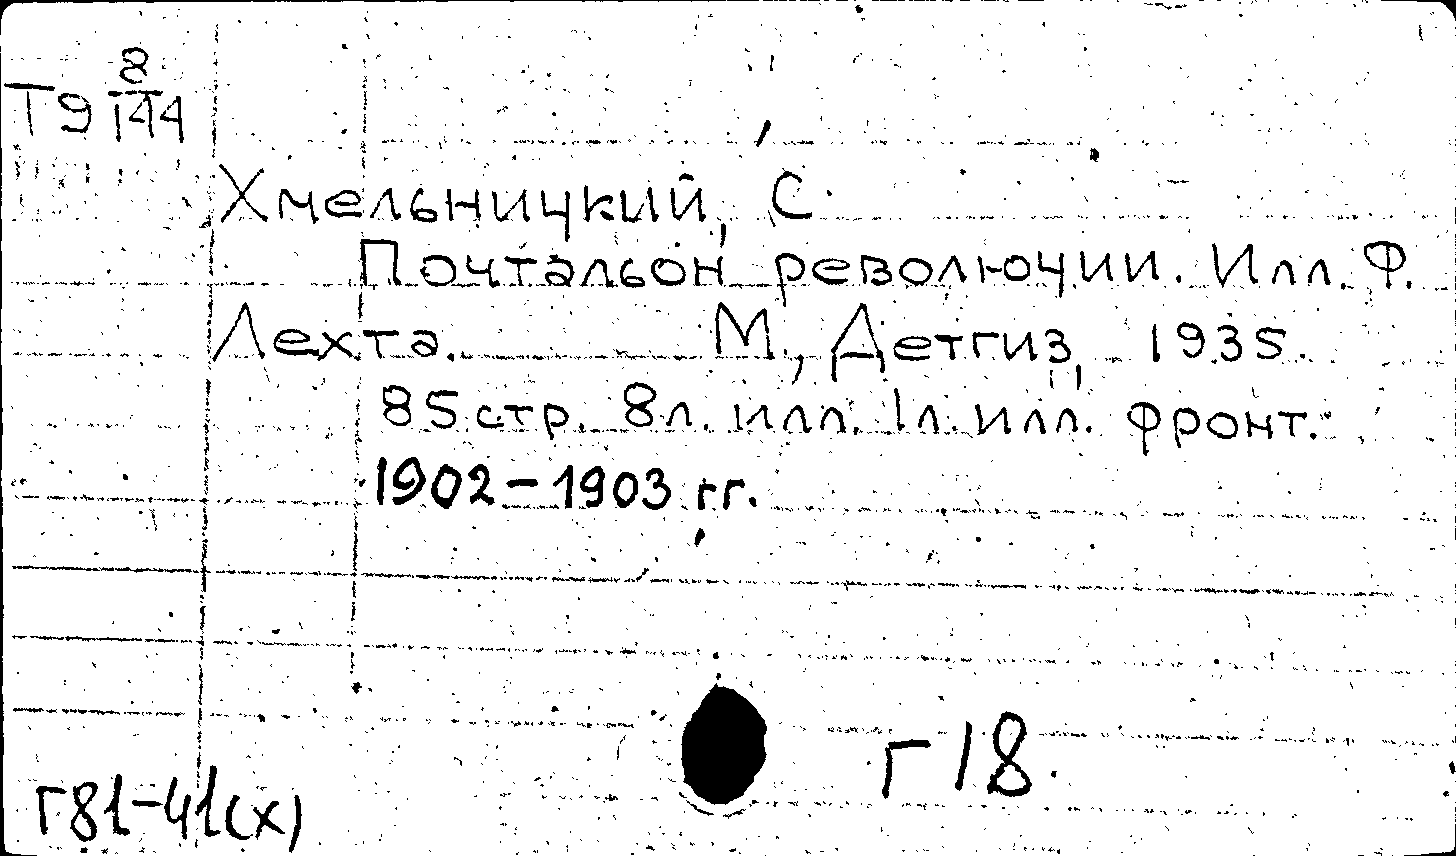 Т9 8/144
Хмельницкий, С.
Почтальон революции. Илл. Ф.
Лехта. М., Детгиз, 1935.
85 стр. 8 л. илл. 1 л. илл. фронт.
1902–1903 гг.
Г 18.
Г81-41(х)